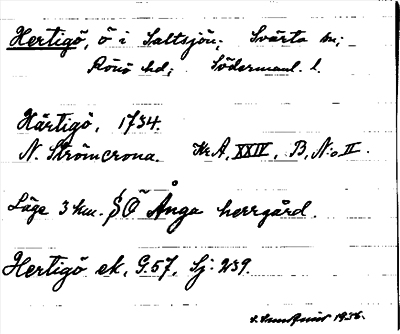 Hertigö, ö i Saltsjön; Svärta sn;
Rönö hd; Södermanl. l.
Härtigö, 1734.
N. Strömcrona. Kr.A, XXIV, B, N:o II.
Läge 3 km. SÖ Ånga herrgård.
Hertigö ek. G.57, Sj: 239.
1936.